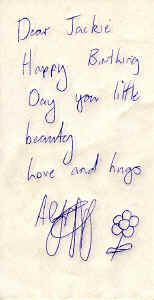 Dear Jackie
Happy Birthing
Day you little
beautey
Love and hugs